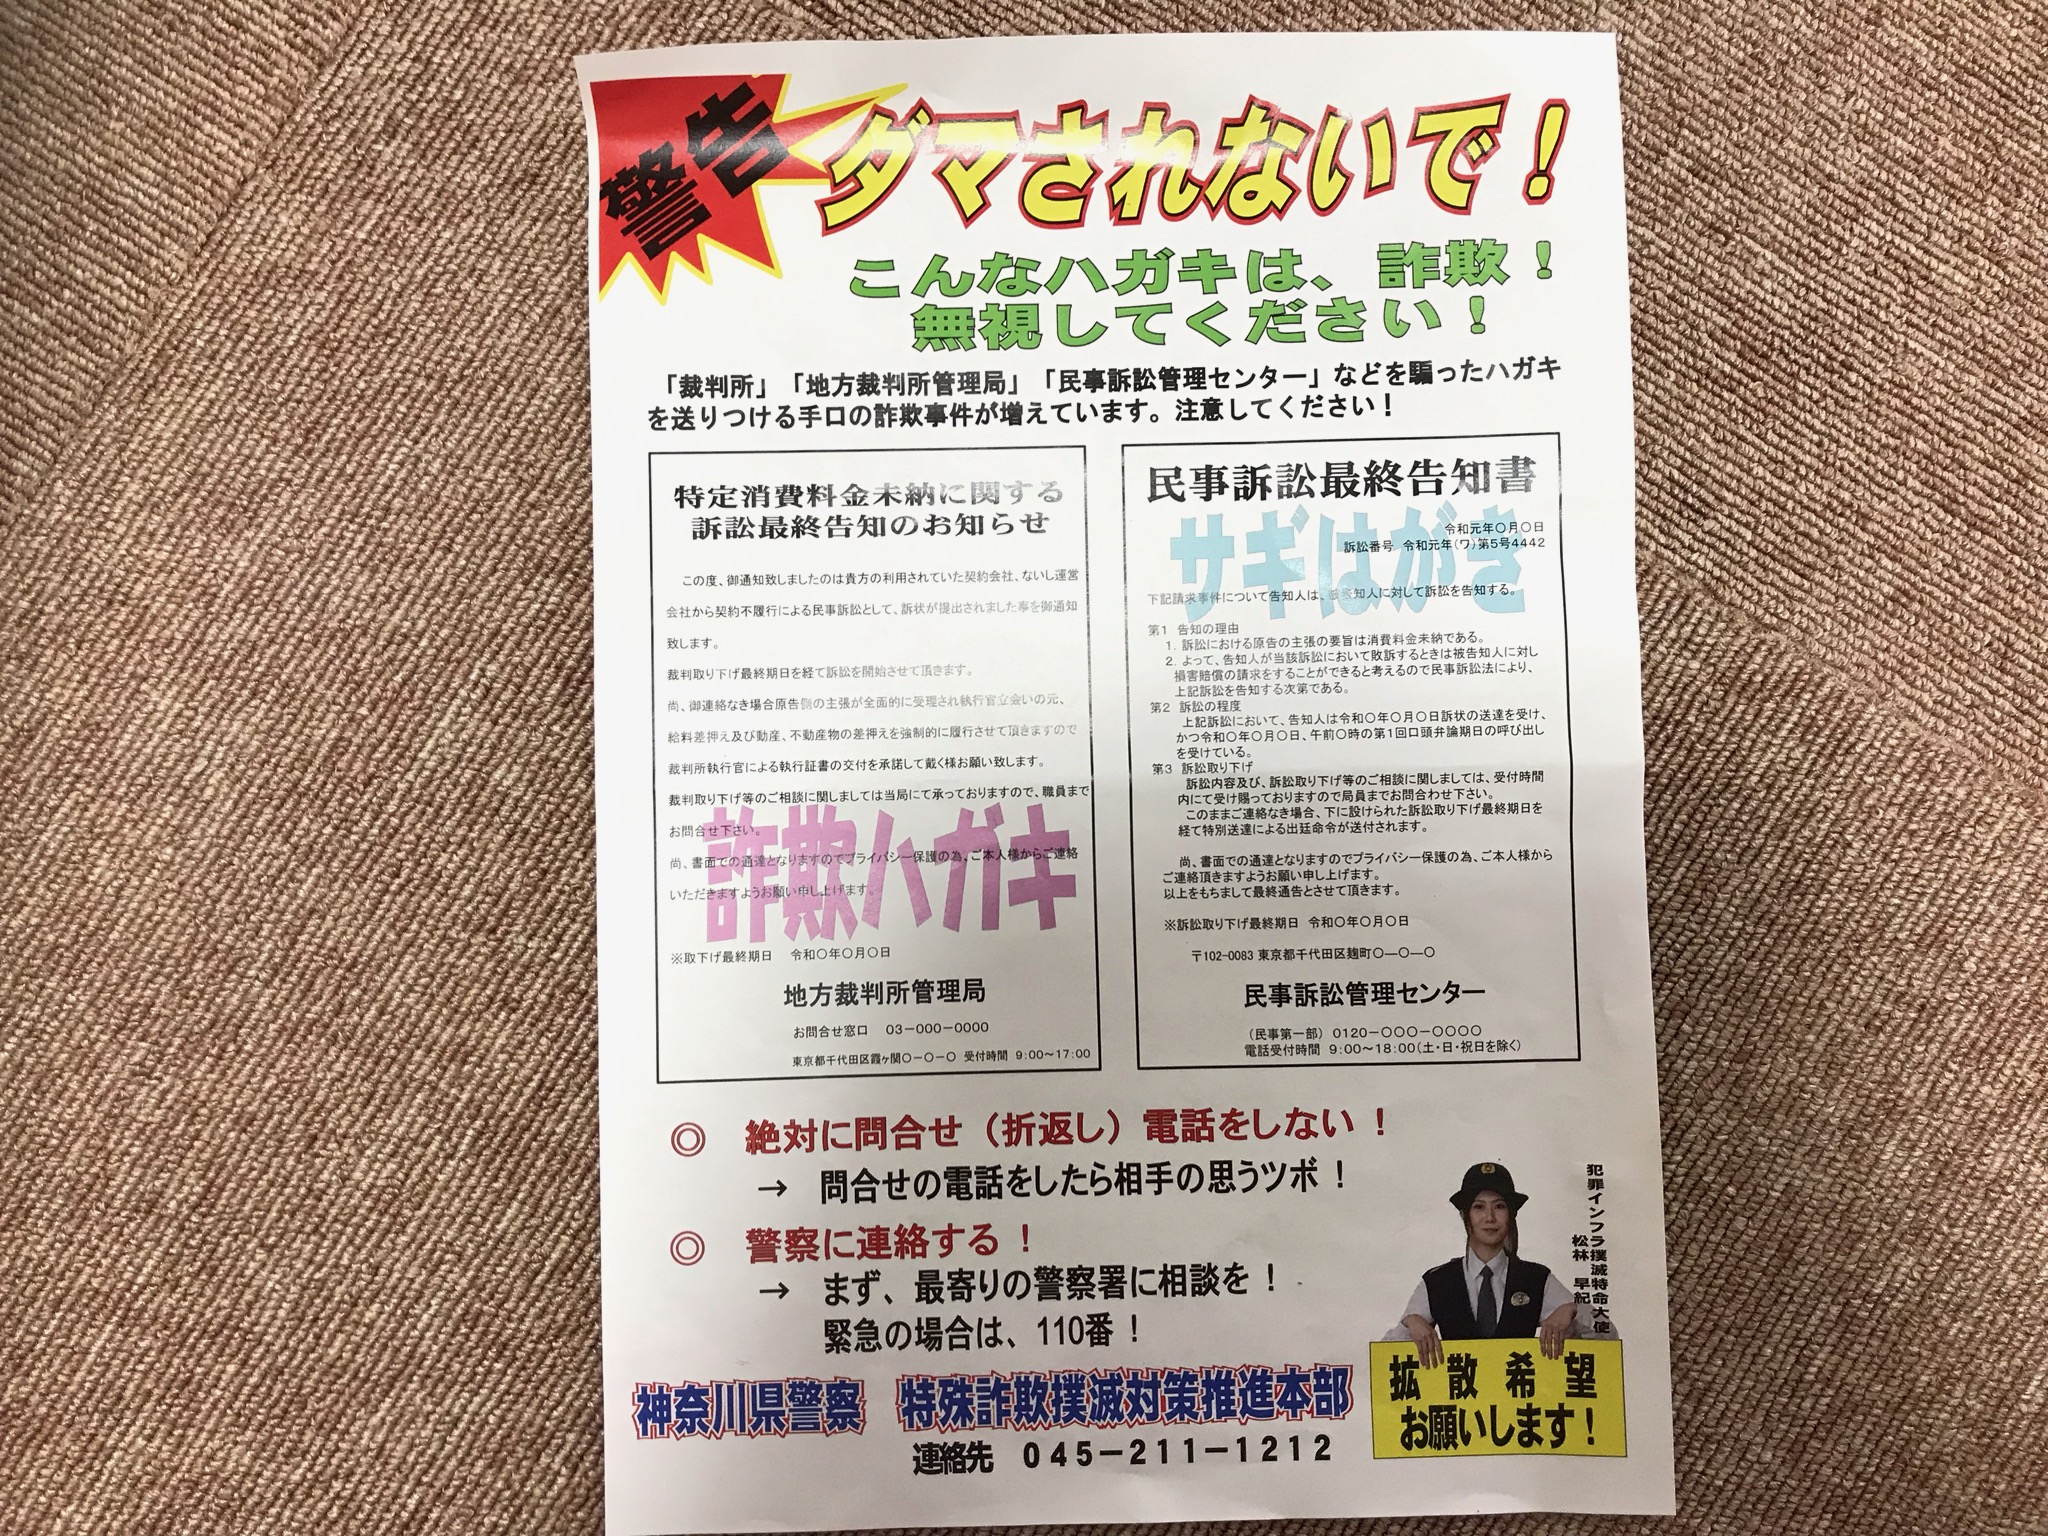 警告
ダマされないで！
こんなハガキは、詐欺！
無視してください！
「裁判所」「地方裁判所管理局」「民事訴訟管理センター」などを騙ったハガキ
を送りつける手口の詐欺事件が増えています。注意してください！
特定消費料金未納に関する
訴訟最終告知のお知らせ
この度、御通知致しましたのは貴方の利用されていた契約会社、ないし運営
会社から契約不履行による民事訴訟として、訴状が提出されました事を御通知
致します。
裁判取り下げ最終期日を経て訴訟を開始させて頂きます。
尚、御連絡なき場合原告側の主張が全面的に受理され執行官立会いの元、
給料差押え及び動産、不動産物の差押えを強制的に履行させて頂きますので
裁判所執行官による執行証書の交付を承諾して戴く様お願い致します。
裁判取り下げ等のご相談に関しましては当局にて承っておりますので、職員まで
お問合せ下さい。
尚、書面での通達となりますのでプライバシー保護の為、ご本人様からご連絡
いただきますようお願い申し上げます。
詐欺ハガキ
※取下げ最終期日　令和〇年〇月〇日
地方裁判所管理局
お問合せ窓口　03－000－0000
東京都千代田区霞ヶ関〇－〇－〇　受付時間　9:00～17:00
民事訴訟最終告知書
サギはがき
令和元年〇月〇日
訴訟番号　令和元年(ワ)第5号4442
下記請求事件について告知人は、被告知人に対して訴訟を告知する。
第1　告知の理由
1．訴訟における原告の主張の要旨は消費料金未納である。
2．よって、告知人が当該訴訟において敗訴するときは被告知人に対し
損害賠償の請求をすることができると考えるので民事訴訟法により、
上記訴訟を告知する次第である。
第2　訴訟の程度
上記訴訟において、告知人は令和〇年〇月〇日訴状の送達を受け、
かつ令和〇年〇月〇日、午前〇時の第1回口頭弁論期日の呼び出し
を受けている。
第3　訴訟取り下げ
訴訟内容及び、訴訟取り下げ等のご相談に関しましては、受付時間
内にて受け賜っておりますので局員までお問合わせ下さい。
このままご連絡なき場合、下に設けられた訴訟取り下げ最終期日を
経て特別送達による出廷命令が送付されます。
尚、書面での通達となりますのでプライバシー保護の為、ご本人様から
ご連絡頂きますようお願い申し上げます。
以上をもちまして最終通告とさせて頂きます。
※訴訟取り下げ最終期日　令和〇年〇月〇日
〒102-0083 東京都千代田区麹町〇―〇―〇
民事訴訟管理センター
（民事第一部）0120－〇〇〇－〇〇〇〇
電話受付時間　9:00～18:00（土・日・祝日を除く）
◎　絶対に問合せ（折返し）電話をしない！
→　問合せの電話をしたら相手の思うツボ！
◎　警察に連絡する！
→　まず、最寄りの警察署に相談を！
緊急の場合は、110番！
神奈川県警察　特殊詐欺撲滅対策推進本部
連絡先　045－211－1212
犯罪インフラ撲滅特命大使
松林　早紀
拡散希望
お願いします！